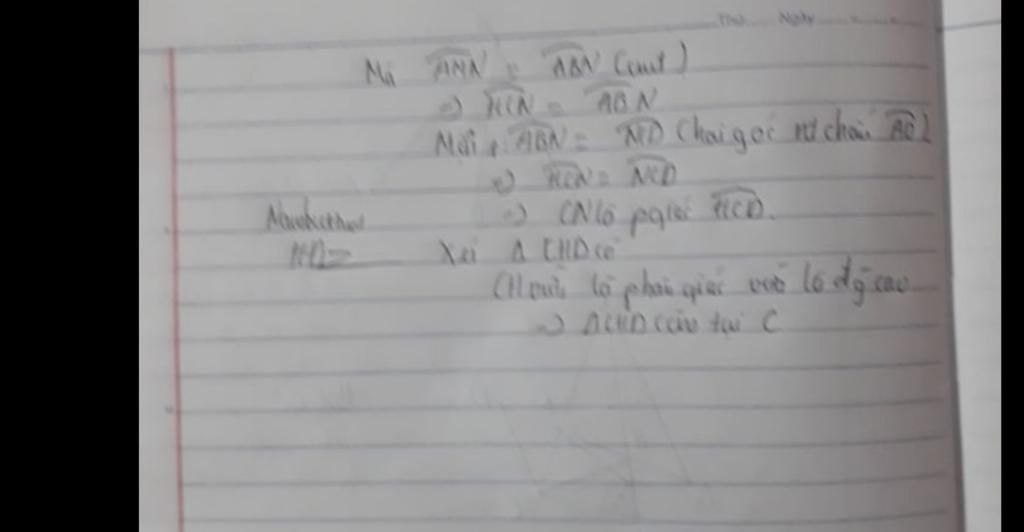 Thứ Ngày
Mà AMN = ABN (cmt)
=> HCN = ABN
Mà ABN = (hai góc nt chắn
=> HCN = NCD
=> CN là pgiác HCD.
Xét Δ CHD có
vừa là phân giác vừa là đg cao
=> ΔCHD cân tại C